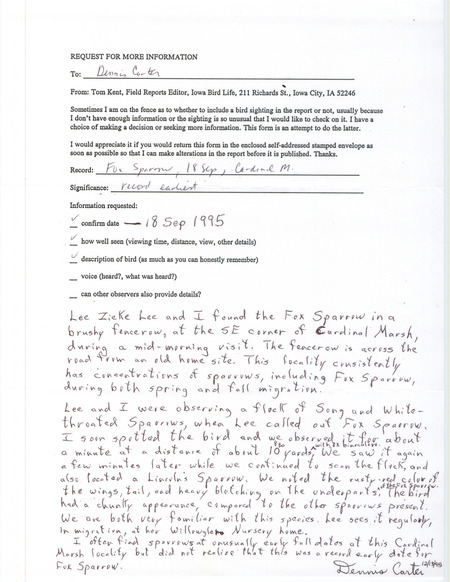 REQUEST FOR MORE INFORMATION
To: Dennis Carter
From: Tom Kent, Field Reports Editor, Iowa Bird Life, 211 Richards St., Iowa City, IA 52246
Sometimes I am on the fence as to whether to include a bird sighting in the report or not, usually because
I don't have enough information or the sighting is so unusual that I would like to check on it. I have a
choice of making a decision or seeking more information. This form is an attempt to do the latter.
I would appreciate it if you would return this form in the enclosed self-addressed stamped envelope as
soon as possible so that I can make alterations in the report before it is published. Thanks.
Record: Fox Sparrow, 18 Sep, Cardinal M.
Significance: record earliest
Information requested:
✓ confirm date — 18 Sep 1995
✓ how well seen (viewing time, distance, view, other details)
✓ description of bird (as much as you can honestly remember)
voice (heard?, what was heard?)
can other observers also provide details?
Lee Zieke Lee and I found the Fox Sparrow in a
brushy fencerow, at the SE corner of Cardinal Marsh,
during a mid-morning visit. The fencerow is across the
road from an old home site. This locality consistently
has concentrations of sparrows, including Fox Sparrow,
during both spring and fall migration.
Lee and I were observing a flock of Song and White-
throated Sparrows, when Lee called out Fox Sparrow.
I soon spotted the bird and we observed it for about
a minute at a distance of about 10 yards, with binoculars. We saw it again
a few minutes later while we continued to scan the flock, and
also located a Lincoln's Sparrow. We noted the rusty-red color of
the wings, tail, and heavy blotching on the underparts. The bird
had a chunky appearance, compared to the other sparrows present.
We are both very familiar with this species. Lee sees it regularly,
in migration, at her Willowglen Nursery home.
I often find sparrows at unusually early fall dates at this Cardinal
Marsh locality but did not realize that this was a record early date for
Fox Sparrow.
Dennis Carter